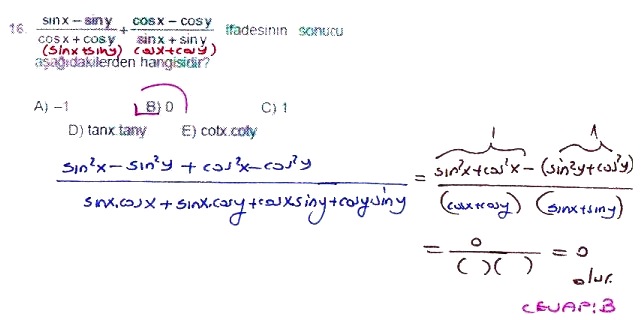 16. sinx − siny / cosx + cosy + cosx − cosy / sinx + siny ifadesinin sonucu
(sinx+siny) (cosx+cosy)
aşağıdakilerden hangisidir?
A) −1 B) 0 C) 1
D) tanx.tany E) cotx.coty
1 1
sin²x − sin²y + cos²x − cos²y / sinx.cosx + sinx.cosy + cosxsiny + cosysiny = sin²x + cos²x − (sin²y + cos²y) / (cosx+cosy) (sinx+siny)
= 0 / ( ) ( ) = 0
olur.
CEVAP: B